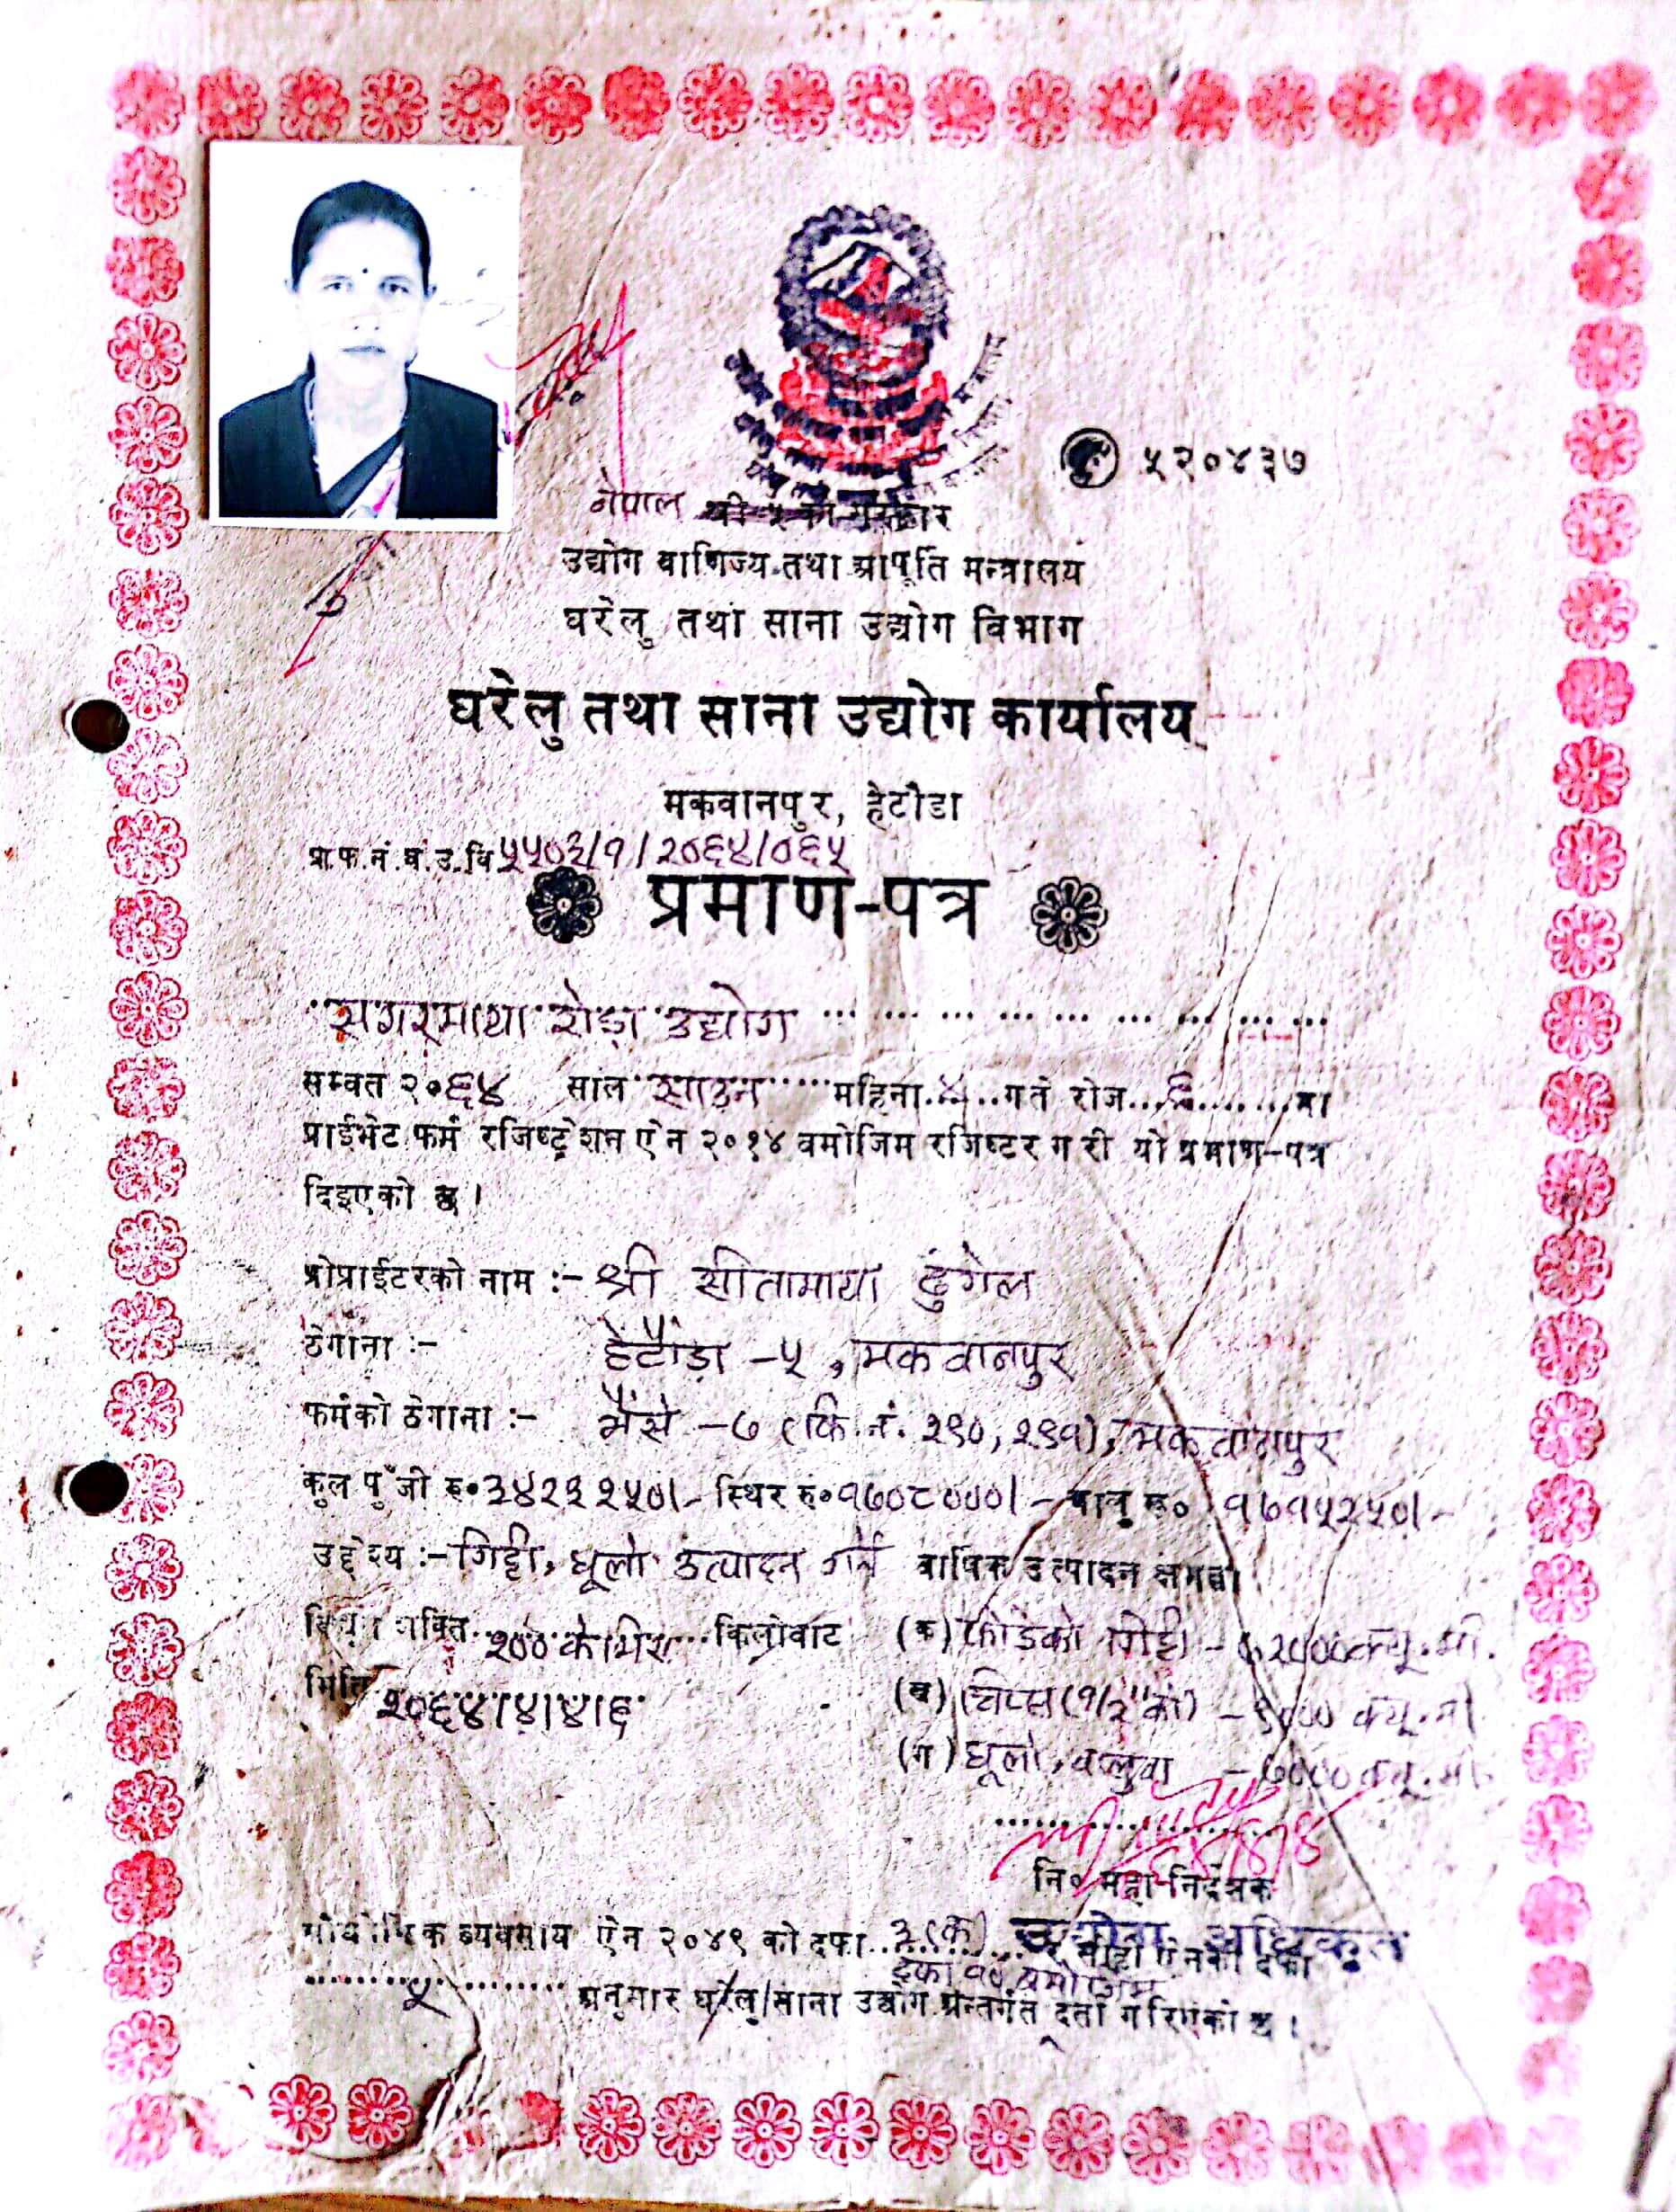 ५२०४३७
नेपाल श्री ५ को सरकार
उद्योग वाणिज्य तथा आपूर्ति मन्त्रालय
घरेलु तथा साना उद्योग विभाग
घरेलु तथा साना उद्योग कार्यालय
मकवानपुर, हेटौडा
प्रा.फ.नं.घ.उ.वि ५५०३/१/२०६४/०६५
प्रमाण-पत्र
सगरमाथा रोडा उद्योग
सम्वत २०६४ साल साउन महिना ४ गते रोज ६ मा
प्राईभेट फर्म रजिष्ट्रेशन ऐन २०१४ वमोजिम रजिष्टर गरी यो प्रमाण-पत्र
दिइएको छ ।
प्रोप्राईटरको नाम :- श्री सीतामाया ढुंगेल
ठेगाना :- हेटौंडा -५, मकवानपुर
फर्मको ठेगाना :- भैंसे -७ (कि.नं. २९०, २९१), मकवानपुर
कुल पुँजी रु० ३४२३२५०/- स्थिर रु० १७०८०००/- चालु रू० १७१५२५०/-
उद्देश्य :- गिट्टी, धूलो उत्पादन गर्ने वार्षिक उत्पादन क्षमता
शक्ति २०० के.भि.ए. किलोवाट (क) फोडेको गिट्टी - ७२००० क्यू.मी.
मिति २०६४।४।४।६ (ख) चिप्स (१/२" को) - ९००० क्यू.मी.
(ग) धूलो, वालुवा - ७००० क्यू.मी.
नि० महा-निर्देशक
उद्योग अधिकृत
औद्योगिक व्यवसाय ऐन २०४९ को दफा ३(क) र सोही ऐनको दफा
दफा १० बमोजिम
५ अनुसार घरेलु/साना उद्योग अन्तर्गत दर्ता गरिएको छ ।